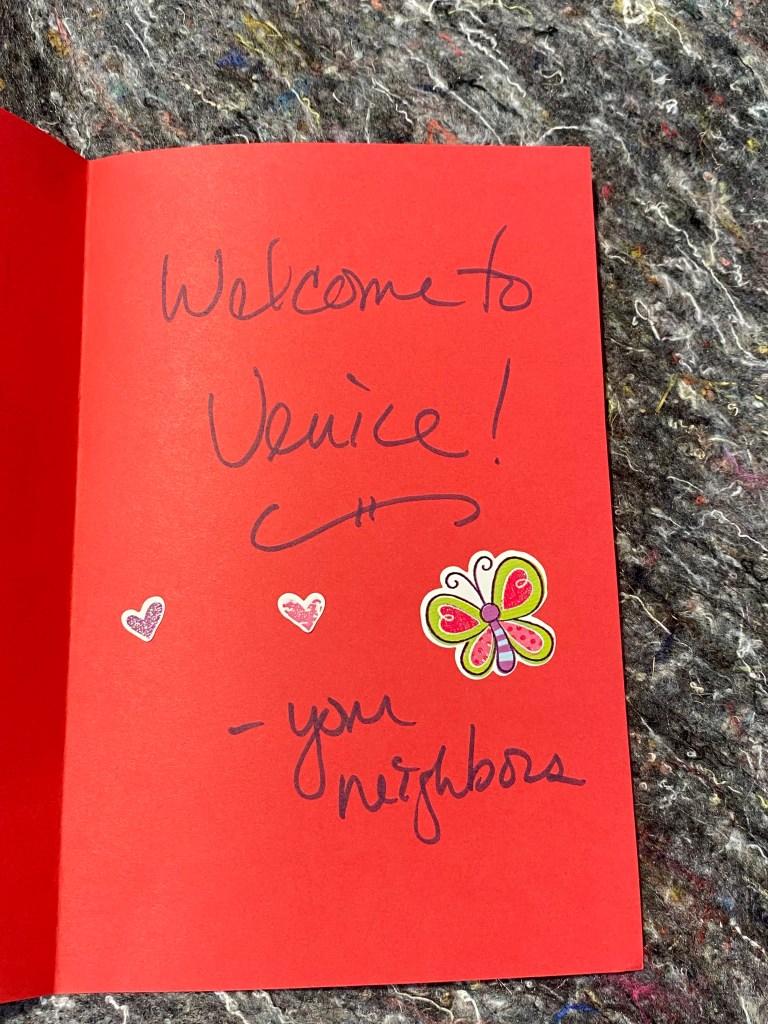 Welcome to
Venice!
- your
neighbors